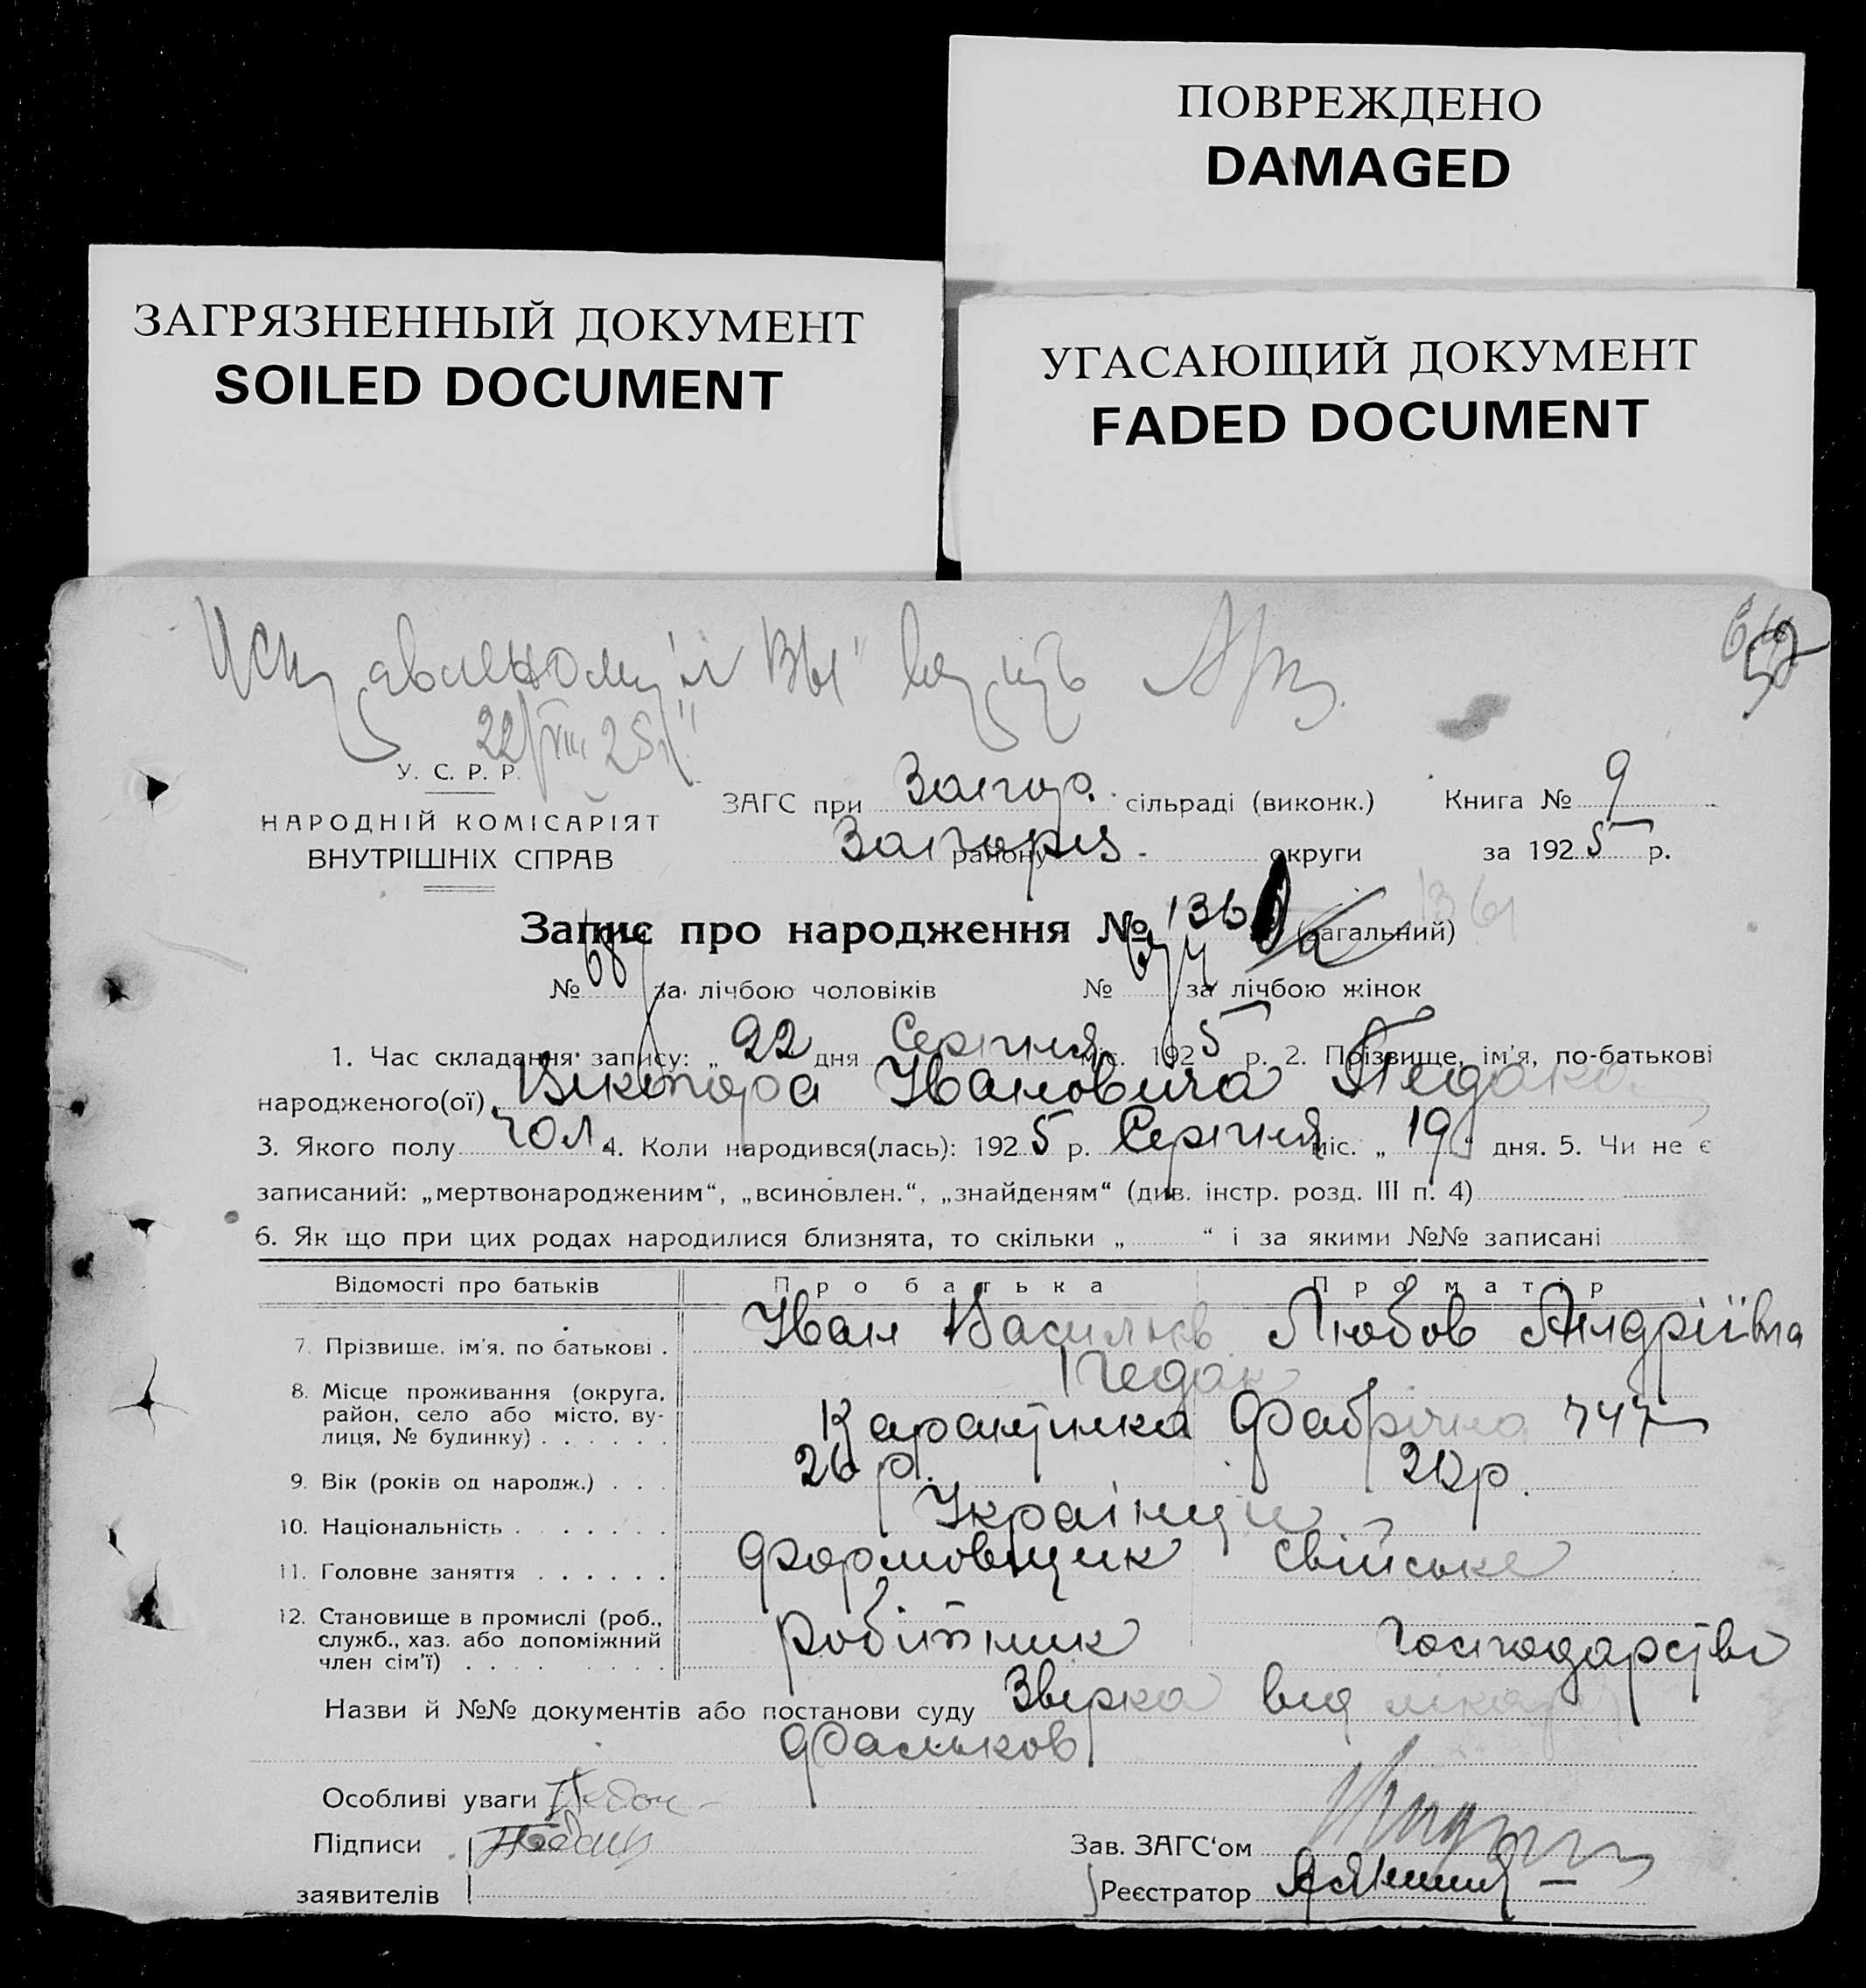 ПОВРЕЖДЕНО
DAMAGED
ЗАГРЯЗНЕННЫЙ ДОКУМЕНТ
SOILED DOCUMENT
УГАСАЮЩИЙ ДОКУМЕНТ
FADED DOCUMENT
22/VIII 25
У. С. Р. Р.
НАРОДНІЙ КОМІСАРІЯТ
ВНУТРІШНІХ СПРАВ
ЗАГС при Запор. сільраді (виконк.) Книга № 9
району округи за 1925 р.
Запис про народження № 136 (загальний)
№ 687 за лічбою чоловіків № за лічбою жінок
1. Час складання запису: „ 22 дня Серпня міс. 1925 р. 2. Прізвище, ім'я, по-батькові
народженого(ої) Віктора Івановича Педака
3. Якого полу чол. 4. Коли народився(лась): 1925 р. Серпня міс. „ 19 “ дня. 5. Чи не є
записаний: „мертвонародженим“, „всиновлен.“, „знайденям“ (див. інстр. розд. III п. 4)
6. Як що при цих родах народилися близнята, то скільки „ “ і за якими №№ записані
Відомості про батьків Про батька Про матір
7. Прізвище. ім'я. по батькові . Іван Васильов Любов Андріївна
Педак
8. Місце проживання (округа, район, село або місто, вулиця, № будинку) Карантинка Фабрічна 747
9. Вік (років од народж.) . . . 26 р. 20 р.
10. Національність Українци
11. Головне заняття Формовщик свійське
12. Становище в промислі (роб., служб., хаз. або допоміжний член сім'ї) робітник господарстві
Назви й №№ документів або постанови суду Звірка від лікаря
Фальков
Особливі уваги
Підписи Зав. ЗАГС'ом
заявителів Реєстратор